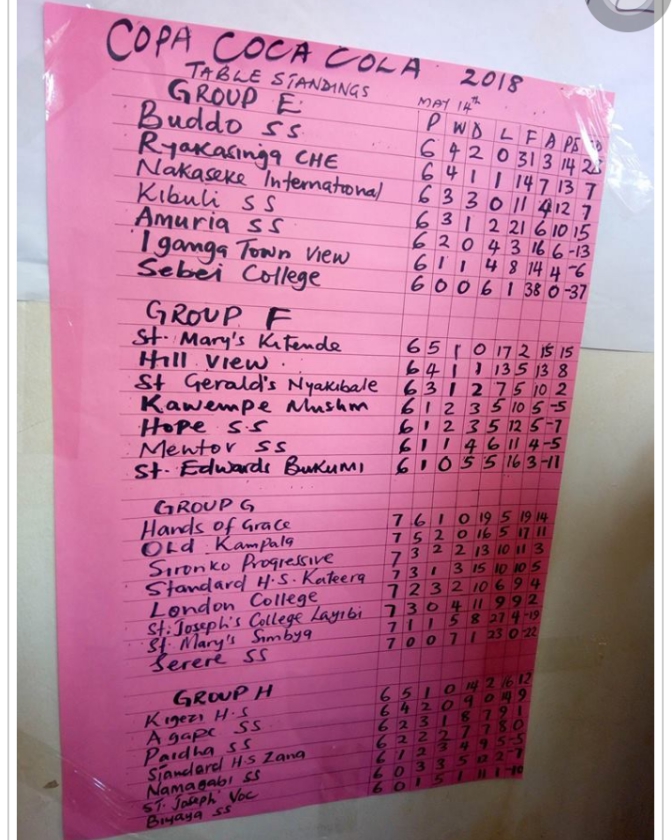 COPA COCA COLA 2018
TABLE STANDINGS MAY 14th
GROUP E P W D L F A PS GD
Buddo SS 6 4 2 0 31 3 14 28
Ryakasinga CHE 6 4 1 1 14 7 13 7
Nakaseke International 6 3 3 0 11 4 12 7
Kibuli SS 6 3 1 2 21 6 10 15
Amuria SS 6 2 0 4 3 16 6 -13
Iganga Town View 6 1 1 4 8 14 4 -6
Sebei College 6 0 0 6 1 38 0 -37
GROUP F
St. Mary's Kitende 6 5 1 0 17 2 15 15
Hill View 6 4 1 1 13 5 13 8
St Gerald's Nyakibale 6 3 1 2 7 5 10 2
Kawempe Mushm 6 1 2 3 5 10 5 -5
Hope S.S 6 1 2 3 5 12 5 -7
Mentor SS 6 1 1 4 6 11 4 -5
St. Edwards Bukumi 6 1 0 5 5 16 3 -11
GROUP G
Hands of Grace 7 6 1 0 19 5 19 14
Old Kampala 7 5 2 0 16 5 17 11
Sironko Progressive 7 3 2 2 13 10 11 3
Standard H.S. Kateera 7 3 1 3 15 10 10 5
London College 7 2 3 2 10 6 9 4
St. Joseph's College Layibi 7 3 0 4 11 9 9 2
St. Mary's Simbya 7 1 1 5 8 27 4 -19
Serere SS 7 0 0 7 1 23 0 -22
GROUP H
Kigezi H.S 6 5 1 0 14 2 16 12
Agape SS 6 4 2 0 9 0 14 9
Paidha SS 6 2 3 1 8 7 9 1
Standard H.S Zana 6 2 2 2 7 7 8 0
Namagabi SS 6 1 2 3 4 9 5 -5
St. Joseph Voc 6 0 3 3 5 12 2 -7
Biyaya SS 6 0 1 5 1 11 1 -10